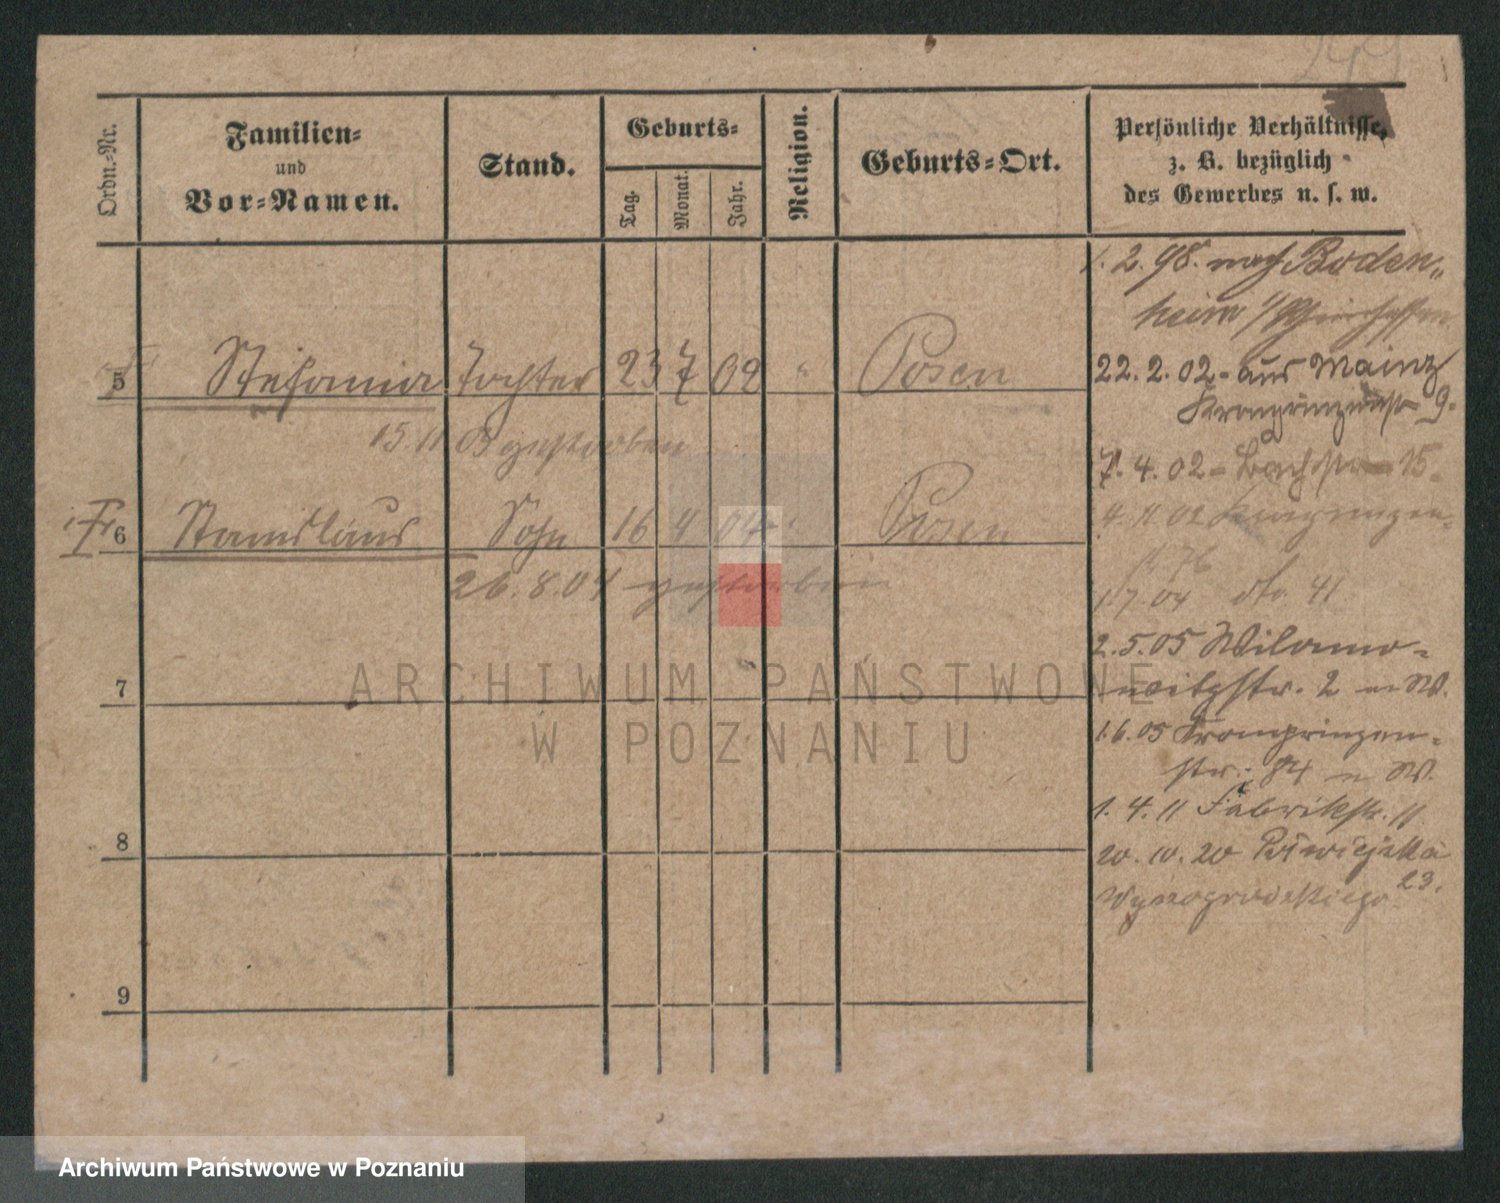 249
Ordn.-Nr.
Familien-
und
Vor-Namen.
Stand.
Geburts-
Tag.
Monat.
Jahr.
Religion.
Geburts-Ort.
Persönliche Verhältnisse,
z. B. bezüglich
des Gewerbes u. s. w.
1. 2. 98. nach Boden-
heim
5 Stefania Tochter 23 7 02 " Posen
15 11 gestorben
22. 2. 02 - aus Mainz
Kronprinzenstr 9.
7. 4. 02 - Bachstr 15.
† 6 Stanislaus Sohn 16 4 04 " Posen
26. 8. 04 gestorben
4. 11 02 Kronprinzen-
str 76
1. 7. 04 do. 41
2. 5. 05 Wilamo-
witzstr. 2 n W.
1. 6. 05 Kronprinzen-
str. 84 n W.
1. 4. 11 Fabrikstr. 11
20. 10. 20 Półwiejska
23.
7
8
9
ARCHIWUM PAŃSTWOWE
W POZNANIU
Archiwum Państwowe w Poznaniu